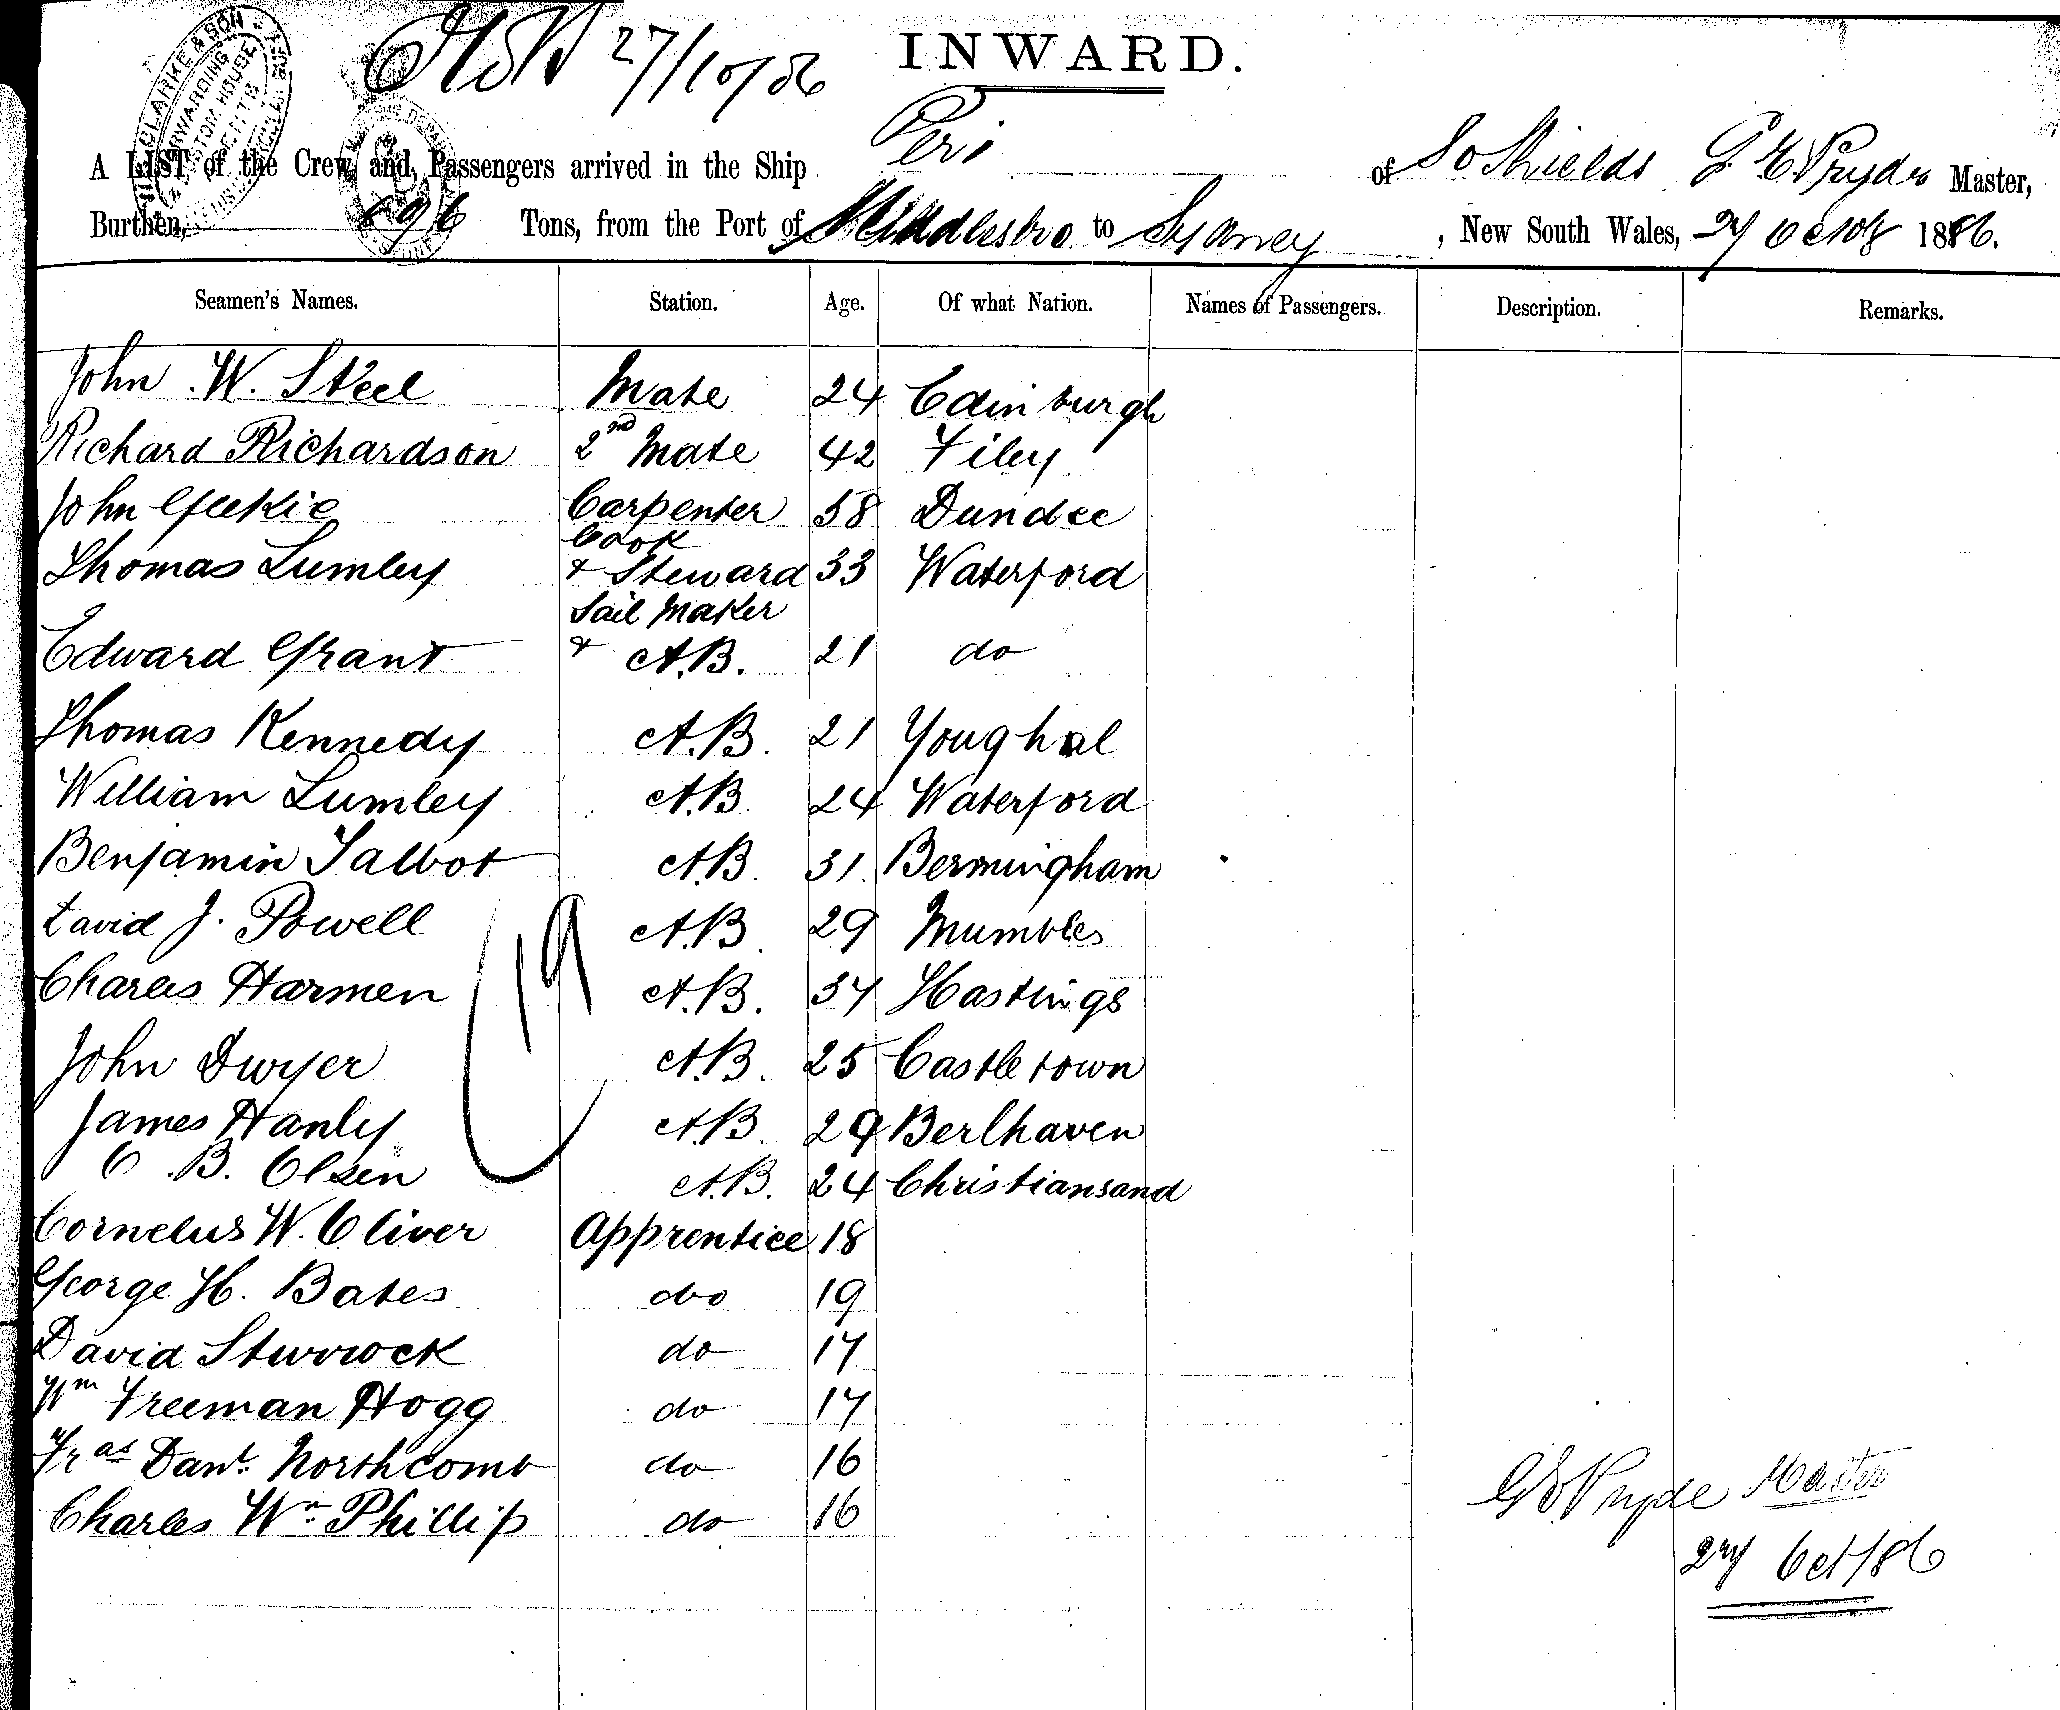 27/10/86 INWARD.
A LIST of the Crew and Passengers arrived in the Ship Peri of So Shields G E Pryde Master,
Burthen, 696 Tons, from the Port of Middlesbro to Sydney, New South Wales, 27 Octob 1886.
Seamen's Names. Station. Age. Of what Nation. Names of Passengers. Description. Remarks.
John W. Steel Mate 24 Edinburgh
Richard Richardson 2nd Mate 42 Filey
John Geekie Carpenter 58 Dundee
Cook
Thomas Lumley & Steward 33 Waterford
Sail Maker
Edward Grant & A.B. 21 do
Thomas Kennedy A.B. 21 Youghal
William Lumley A.B. 24 Waterford
Benjamin Talbot A.B. 31 Bermingham
David J. Powell A.B. 29 Mumbles
Charles Harmen A.B. 37 Hastings
19
John Dwyer A.B. 25 Castletown
James Hanly A.B. 29 Berlhaven
O. B. Olsen A.B. 24 Christiansand
Cornelus W. Oliver Apprentice 18
George H. Bates do 19
David Sturrock do 17
Wm Freeman Hogg do 17
Fras Danl. Northcomb do 16
Charles Wm Phillip do 16
G E Pryde Master
27 Oct/86